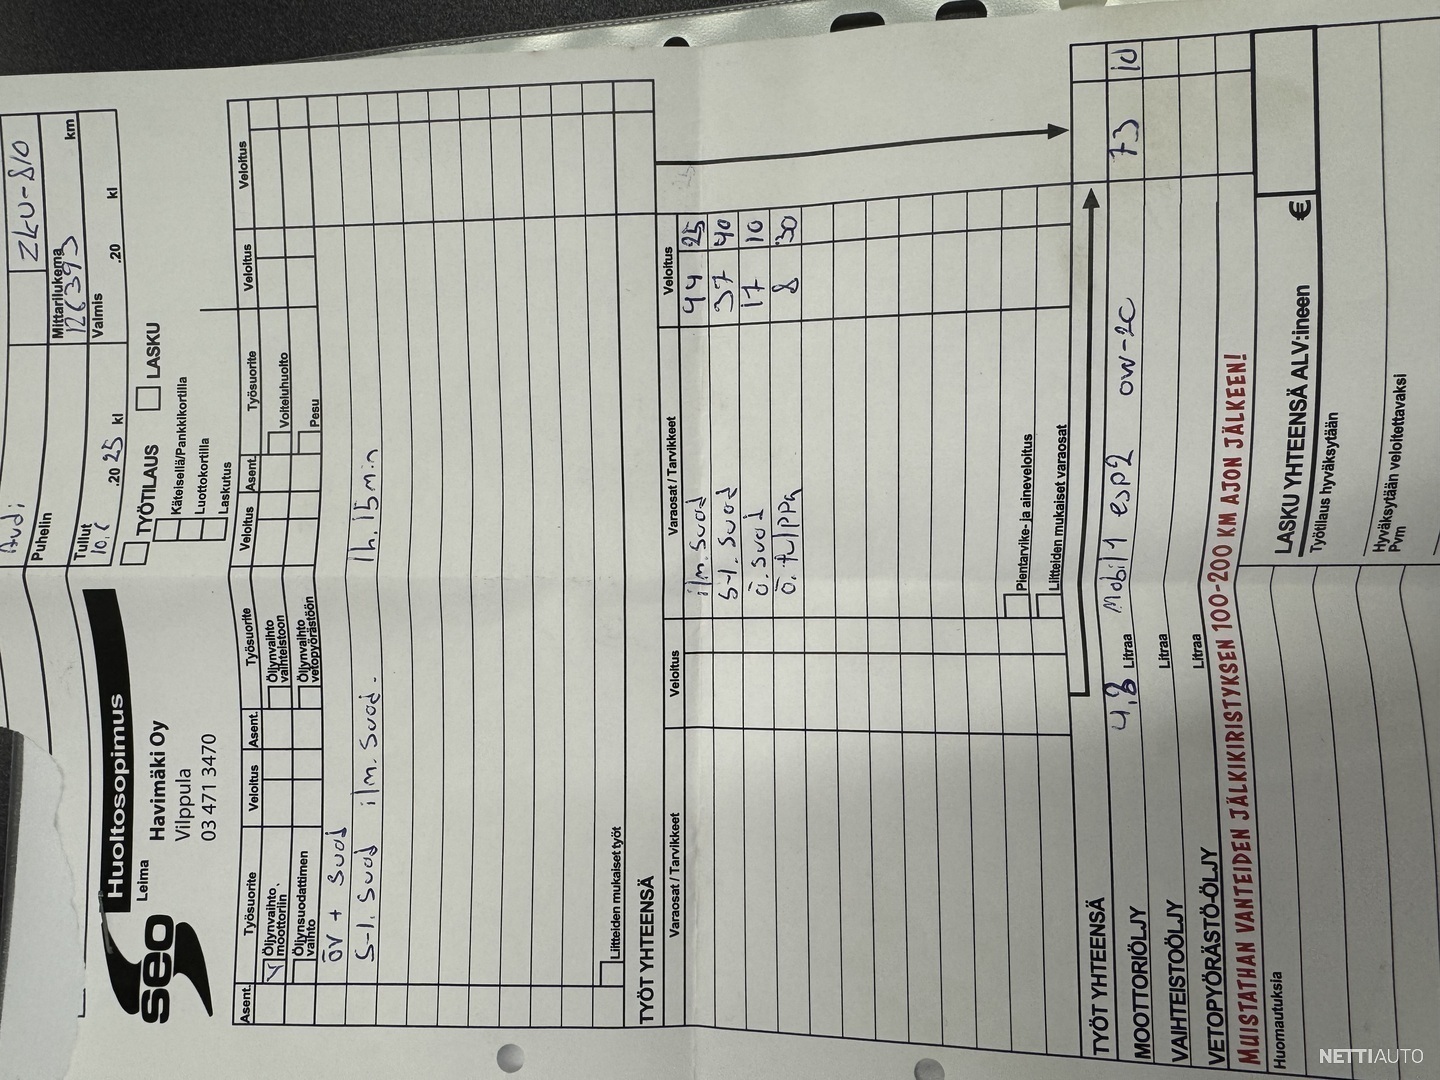 Audi ZKU-810
Puhelin Mittarilukema 126393 km
Tullut 10.6 .20 25 kl Valmis .20 kl
seo Huoltosopimus
Leima
Havimäki Oy
Vilppula
03 471 3470
TYÖTILAUS LASKU
Käteisellä/Pankkikortilla
Luottokortilla
Laskutus
Asent. Työsuorite Veloitus Asent. Työsuorite Veloitus Asent. Työsuorite Veloitus Veloitus
Öljynvaihto moottoriin Öljynvaihto vaihteistoon Voiteluhuolto
Öljynsuodattimen vaihto Öljynvaihto vetopyörästöön Pesu
öv + suod
S-l. suod ilm. suod. 1h. 15min
Liitteiden mukaiset työt
TYÖT YHTEENSÄ
Varaosat / Tarvikkeet Veloitus Varaosat / Tarvikkeet Veloitus
ilm. suod 44 25
S-l. suod 37 40
ö. suod 17 10
ö. tulppa 8 30
Pientarvike- ja aineveloitus
Liitteiden mukaiset varaosat
TYÖT YHTEENSÄ
MOOTTORIÖLJY 4,8 Litraa Mobil 1 esp2 0w-20 73 10
VAIHTEISTOÖLJY Litraa
VETOPYÖRÄSTÖ-ÖLJY Litraa
MUISTATHAN VANTEIDEN JÄLKIKIRISTYKSEN 100-200 KM AJON JÄLKEEN!
Huomautuksia LASKU YHTEENSÄ ALV:ineen €
Työtilaus hyväksytään
Hyväksytään veloitettavaksi
Pvm
NETTIAUTO